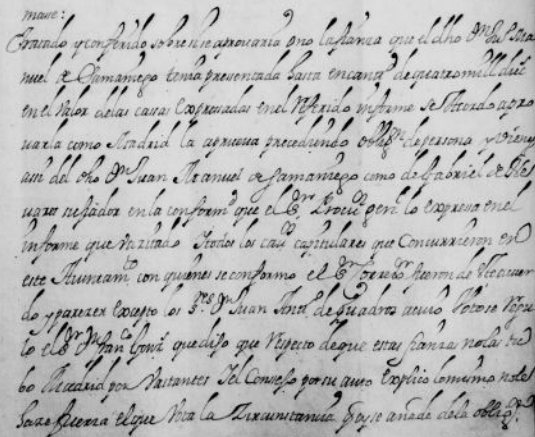 mase:
Tratado y conferido sobre si se aprovaria o no la fianza que el dho Dn Juan Ma
nuel de Samaniego tenia presentada hasta en cantd de quatro mill ducs
en el valor de las casas expresadas en el referido informe se Acordo apro
varla como Madrid la aprueva precediendo obligon de persona y vienes
asi del dho Dn Juan Manuel de Samaniego como de Gabriel de
vares su fiador en la conformd que el Sr Procur genl lo expresa en el
informe que va zitado Y todos los cavs capitulares que Concurrieron en
este Ayuntamto con quienes se conformo el Sr Corredor fueron de este acuer
do y parezer excepto los Sres Dn Juan Antt de Quadros a cuio Voto se
lo el Sr Dn Franco que dijo que respecto de que estas fianzas no las tu
bo Madrid por vastantes Y el Consejo por su auto explico lo mismo no les
haze fuerza el que Vta la Zircunstancia que se añade de la obligon